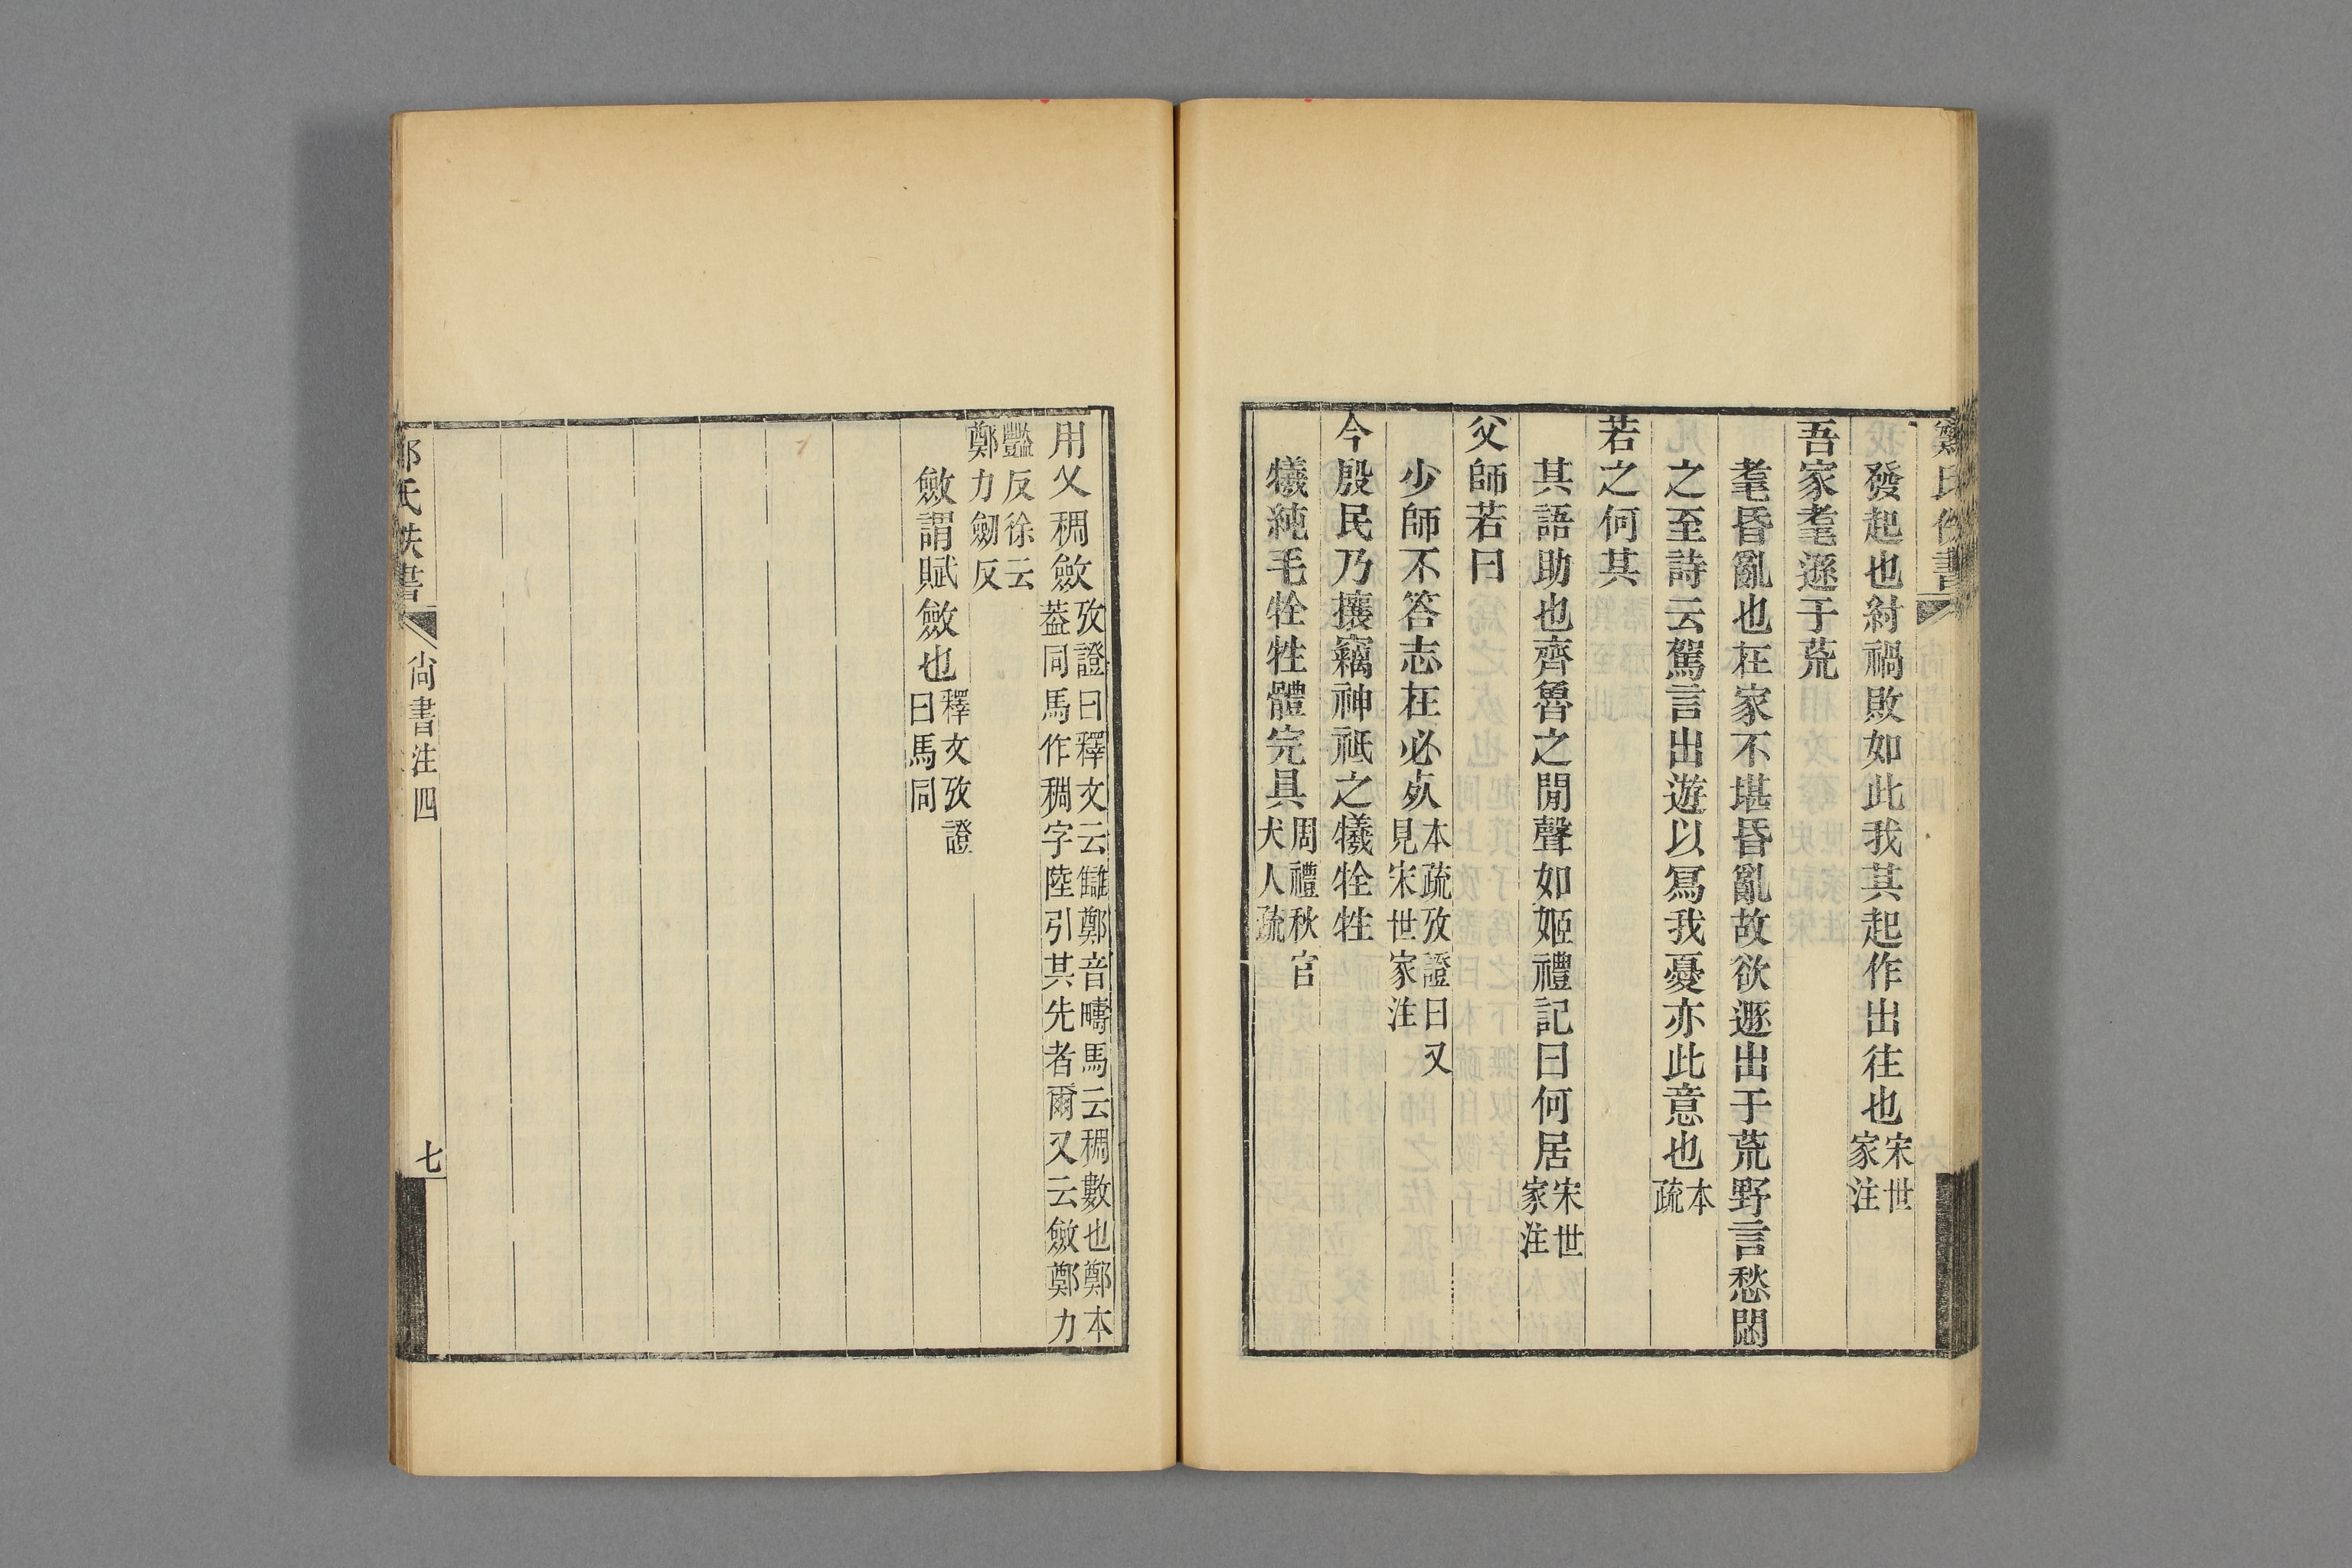 發起也紂禍敗如此我其起作出往也宋世家注
吾家耄遜于荒
耄昏亂也在家不堪昏亂故欲遯出于荒野言愁悶
之至詩云駕言出遊以寫我憂亦此意也本疏
若之何其
其語助也齊魯之閒聲如姬禮記曰何居宋世家注
父師若曰
少師不答志在必死本疏攷證曰又見宋世家注
今殷民乃攘竊神祗之犧牷牲
犧純毛牷牲體完具周禮秋官犬人疏
用乂稠斂攷證曰釋文云讎鄭音疇馬云稠數也鄭本葢同馬作稠字陸引其先者爾又云斂鄭力
豔反徐云鄭力劒反
斂謂賦斂也釋文攷證曰馬同
氏佚書
尙書注四
七